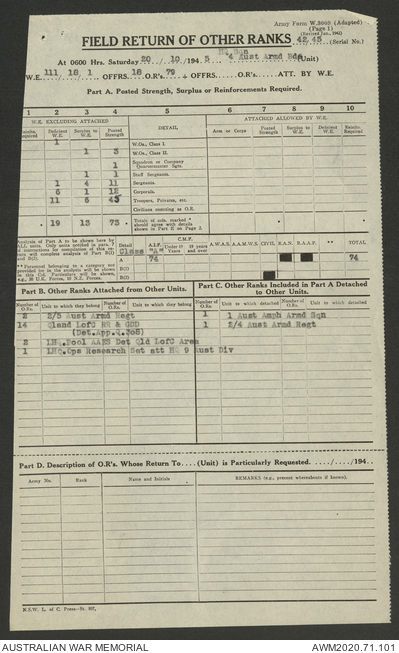 Army Form W.3009 (Adapted)
(Page 1)
(Revised Jan., 1943)
FIELD RETURN OF OTHER RANKS 42.45 (Serial No.)
HQ Sqn
At 0600 Hrs. Saturday 20 / 10 /194 5 4 Aust Armd Bde (Unit)
W.E. 111 / 18 / 1 OFFRS. 18 O.R's. 79 + OFFRS. O.R's. ATT. BY W.E.
Part A. Posted Strength, Surplus or Reinforcements Required.
1 2 3 4 5 6 7 8 9 10
W.E. EXCLUDING ATTACHED DETAIL ATTACHED ALLOWED BY W.E.
Reinfts. Required Deficient W.E. Surplus to W.E. Posted Strength Arm or Corps Posted Strength Surplus to W.E. Deficient W.E. Reinfts. Required
1 W.Os., Class I.
1 3 W.Os., Class II.
1 Squadron or Company Quartermaster Sgts.
1 1 Staff Sergeants.
1 4 11 Sergeants.
6 1 12 Corporals.
11 6 45 Troopers, Privates, etc.
Civilians counting as O.R.
19 13 73 Totals of cols. marked * should agree with details shown in Part E on Page 2.
Analysis of Part A to be shown here by ALL units. Only units notified in part. 1 of instructions for compilation of this return will complete analysis of Part B(i) and B(ii).
** Personnel belonging to a category not provided for in the analysis will be shown in this Col. Particulars will be shown, e.g., 20 U.K. Forces, 10 N.Z. Forces.
Detail A.I.F. C.M.F. Under 19 Years 19 years and over A.W.A.S. A.A.M.W.S. CIVIL R.A.N. R.A.A.F. ** TOTAL
Class "A"
A 74 74
B(i)
B(ii)
Part B. Other Ranks Attached from Other Units.
Part C. Other Ranks Included in Part A Detached to Other Units.
Number of O.Rs. Unit to which they belong Number of O.Rs. Unit to which they belong
Number of O.Rs. Unit to which detached Number of O.Rs. Unit to which detached
2 2/5 Aust Armd Regt
14 Qland LofC RR & GDD
(Det.App.Q.308)
2 LHQ.Pool AAES Det Qld LofC Area
1 LHQ.Ops Research Sec att HQ 9 Aust Div
1 1 Aust Amph Armd Sqn
1 2/4 Aust Armd Regt
Part D. Description of O.R's. Whose Return To....(Unit) is Particularly Requested. ..../..../194..
Army No. Rank Name and Initials REMARKS (e.g., present whereabouts if known).
N.S.W. L. of C. Press—St. 807.
AUSTRALIAN WAR MEMORIAL
AWM2020.71.101